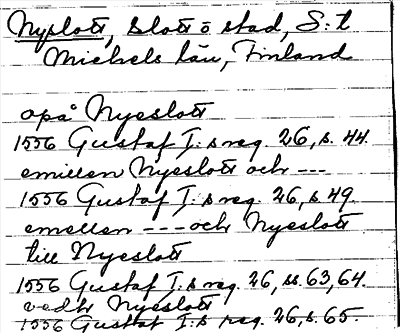 Nyslott, slott o stad, S:t
Michels län, Finland
opå Nyeslott
1556 Gustaf I:s reg. 26, s. 44.
emillen Nyeslott och ---
1556 Gustaf I:s reg. 26, s. 49.
emellen --- och Nyeslott
till Nyeslott
1556 Gustaf I:s reg. 26, ss. 63, 64.
vedh Nyeslott
1556 Gustaf I:s reg. 26, s. 65.